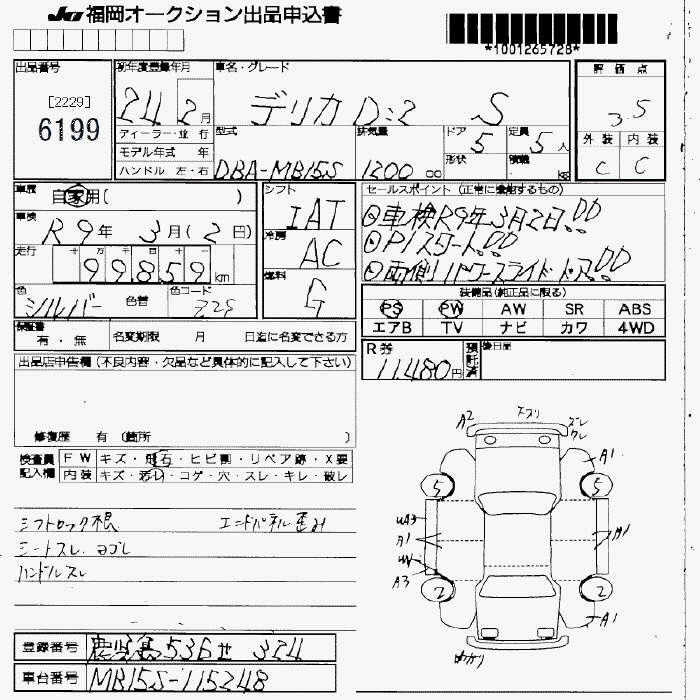 JU 福岡オークション出品申込書
*1001265728*
出品番号
[2229]
6199
初年度登録年月
24 2月
車名・グレード
デリカ D:2 S
評価点
3.5
外装 内装
C C
ディーラー・並行
モデル年式 年
ハンドル 左・右
型式
DBA-MB15S
排気量
1200 cc
ドア
5
形状
定員
5人
積載
kg
車歴
自家用( )
車検
R9年 3月(2日)
走行
十万千百十一
99859 km
色
シルバー 色替
色コード
ZZS
シフト
IAT
冷房
AC
燃料
G
セールスポイント (正常に機能するもの)
⊙車検R9年3月2日!!
⊙P/スタート!!
⊙両側パワースライドドア!!
装備品(純正品に限る)
PS PW AW SR ABS
エアB TV ナビ カワ 4WD
保証書
有・無
名変期限 月 日迄に名変できる方
R券
11,480円
預託済
後日品
出品店申告欄 (不良内容・欠品など具体的に記入して下さい)
修復歴 有 (箇所 )
検査員記入欄
FW キズ・飛石・ヒビ割・リペア跡・X要
内装 キズ・汚レ・コゲ・穴・スレ・キレ・破レ
シフトロック根 エンドパネル歪み
シートスレ.ヨゴレ
ハンドルスレ
A2 ズブリ スレ
ワレ
A1
5 5
UA3
A1 A1
A3
2 2
A1
ゆがみ
登録番号
鹿児島 536せ 324
車台番号
MB15S-115248